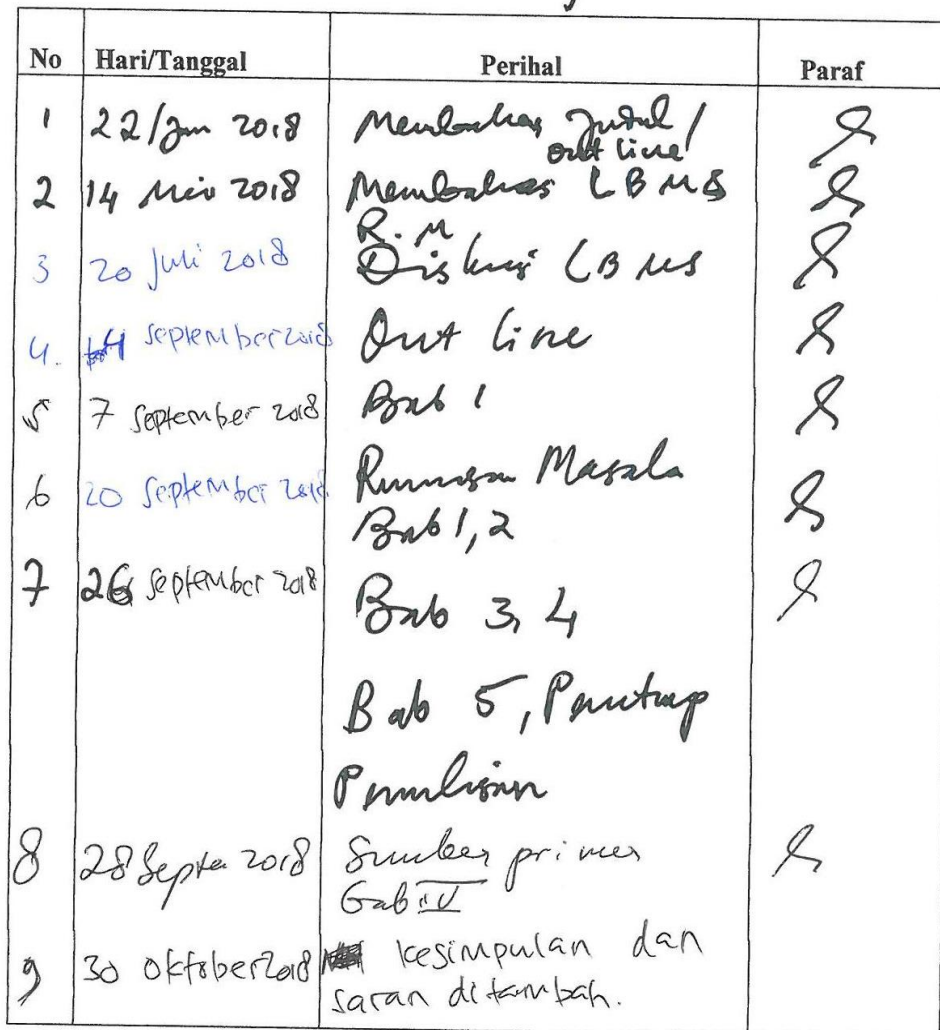 No Hari/Tanggal Perihal Paraf
1 22/Jun 2018 Membahas Judul /
out line
2 14 Mei 2018 Membahas LBMS
R.M
3 20 Juli 2018 Diskusi LBMS
4. 4 September 2018 Out line
5 7 September 2018 Bab 1
6 20 September 2018 Rumusan Masala
Bab 1, 2
7 26 September 2018 Bab 3, 4
Bab 5, Penutup
Penulisan
8 28 Septe 2018 Sumber primer
Bab IV
9 30 Oktober 2018 kesimpulan dan
saran ditambah.